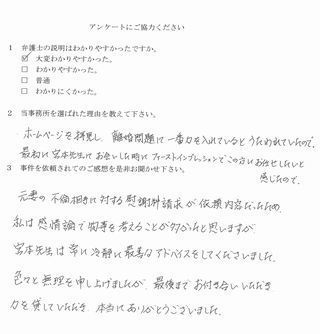 アンケートにご協力ください
1 弁護士の説明はわかりやすかったですか。
☑ 大変わかりやすかった。
□ わかりやすかった。
□ 普通
□ わかりにくかった。
2 当事務所を選ばれた理由を教えて下さい。
・ホームページを拝見し、離婚問題に一番力を入れているとうたわれていたので。
最初に宮本先生にお会いした時にファーストインプレッションでこの方にお任せしたいと
感じたので。
3 事件を依頼されてのご感想を是非お聞かせ下さい。
元妻の不倫相手に対する慰謝料請求が依頼内容だったため、
私は感情論で物事を考えることが多かったと思いますが、
宮本先生は常に冷静に最善なアドバイスをしてくださいました。
色々と無理を申し上げましたが、最後までお付き合いいただき
力を貸していただき、本当にありがとうございました。